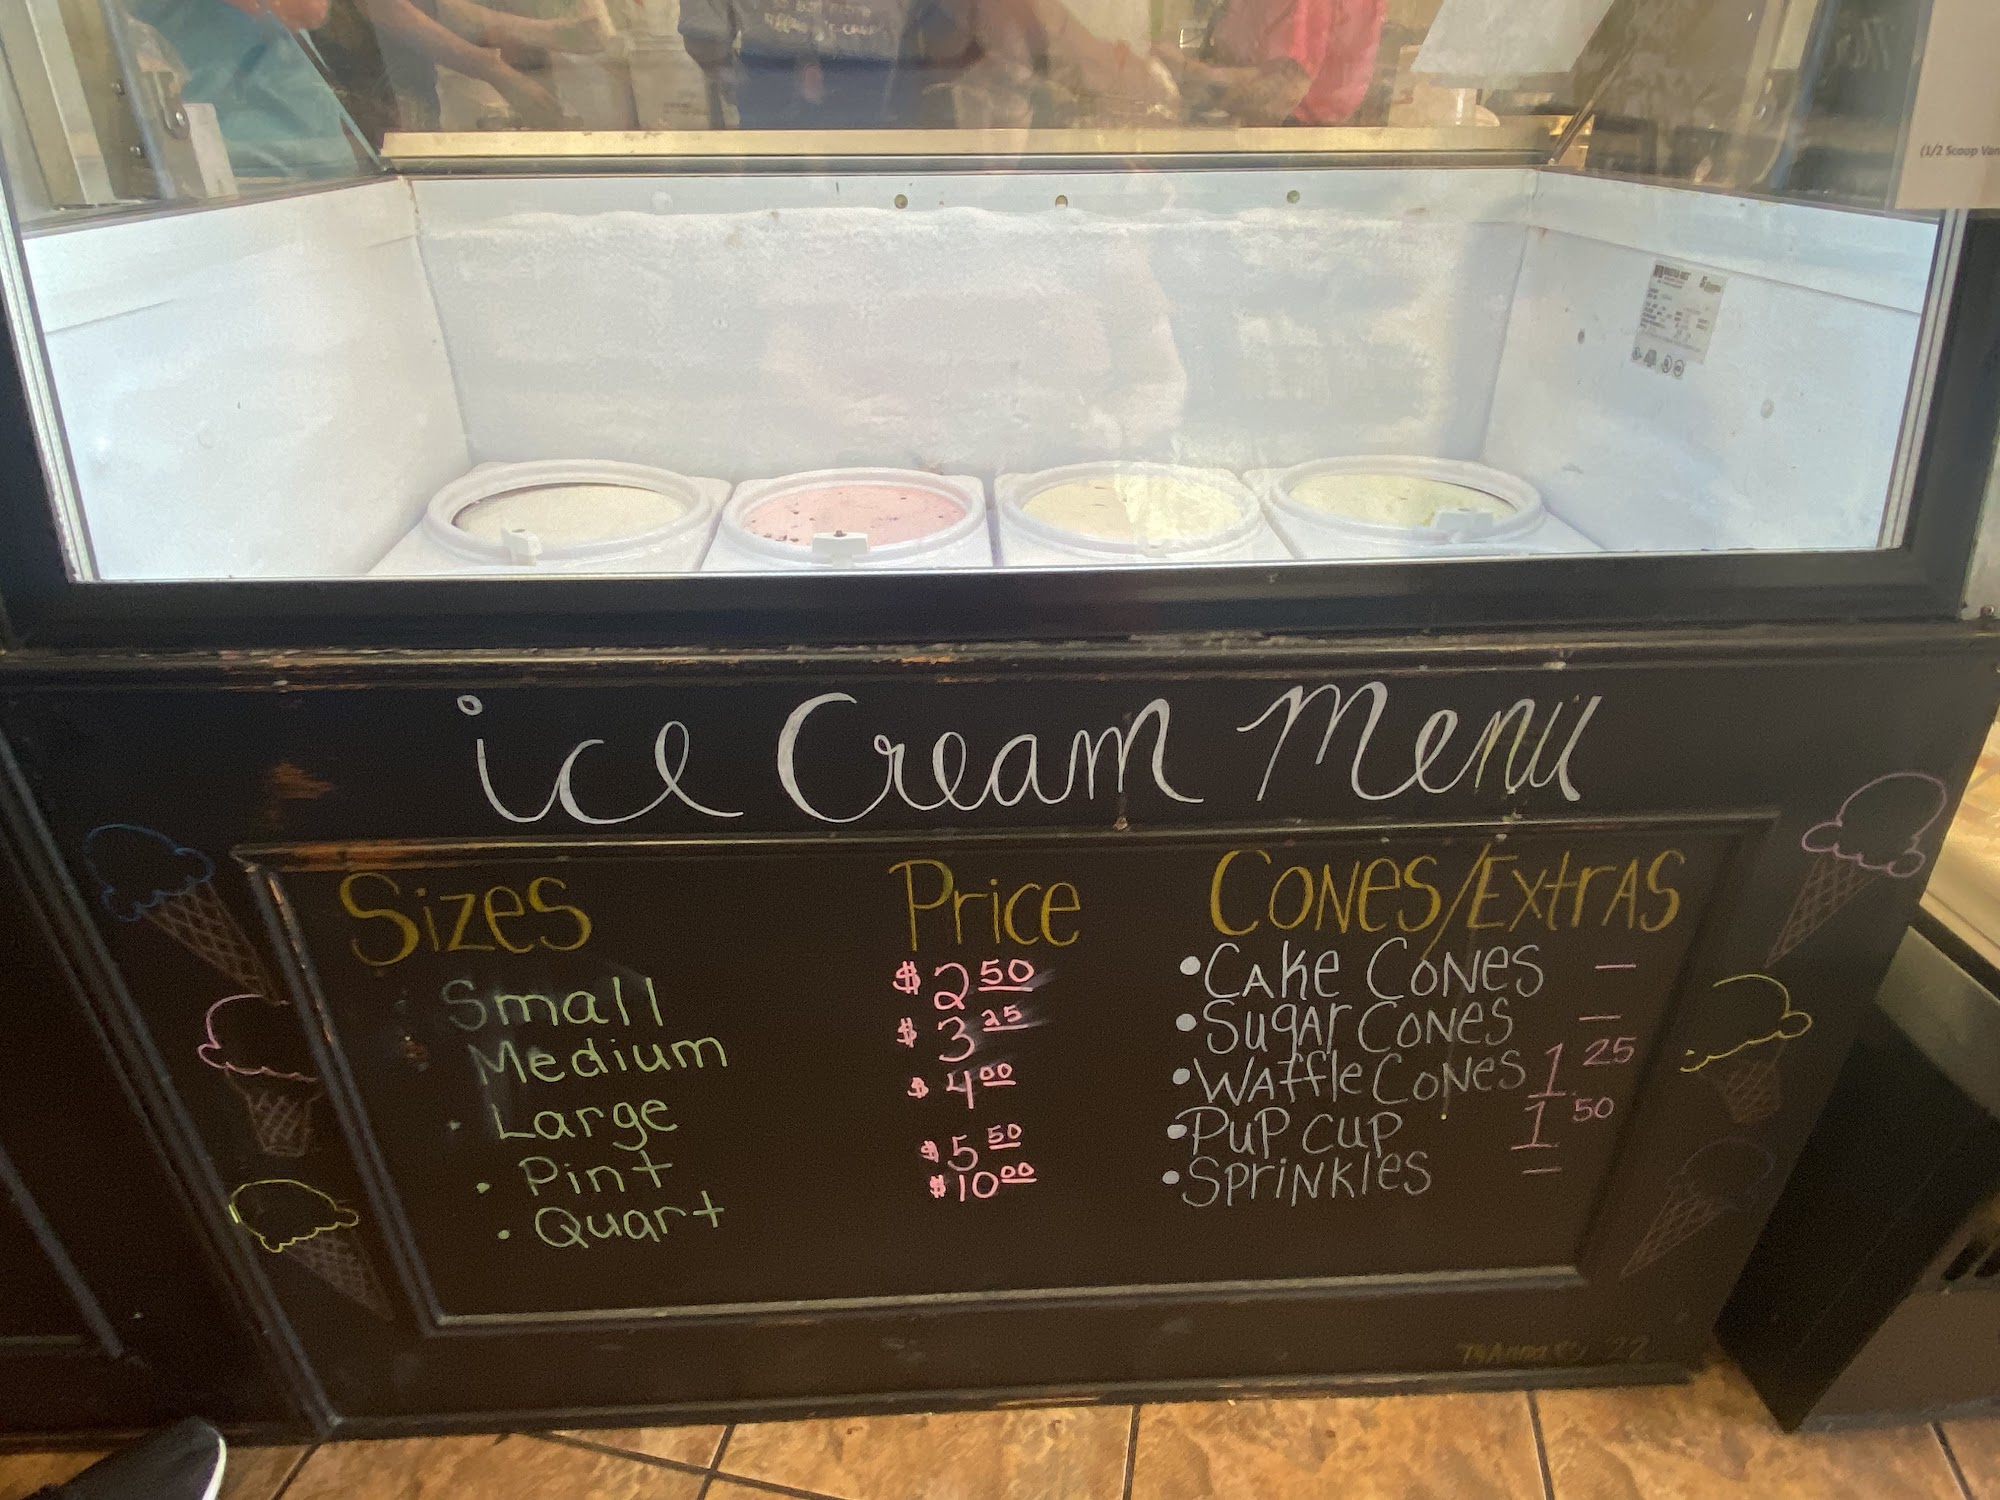 (1/2 Scoop
ice Cream Menu
Sizes Price Cones/Extras
Small $2.50 • Cake Cones —
Medium $3.25 • Sugar Cones —
Large $4.00 • Waffle Cones 1.25
• Pint $5.50 • Pup cup 1.50
• Quart $10.00 • Sprinkles —